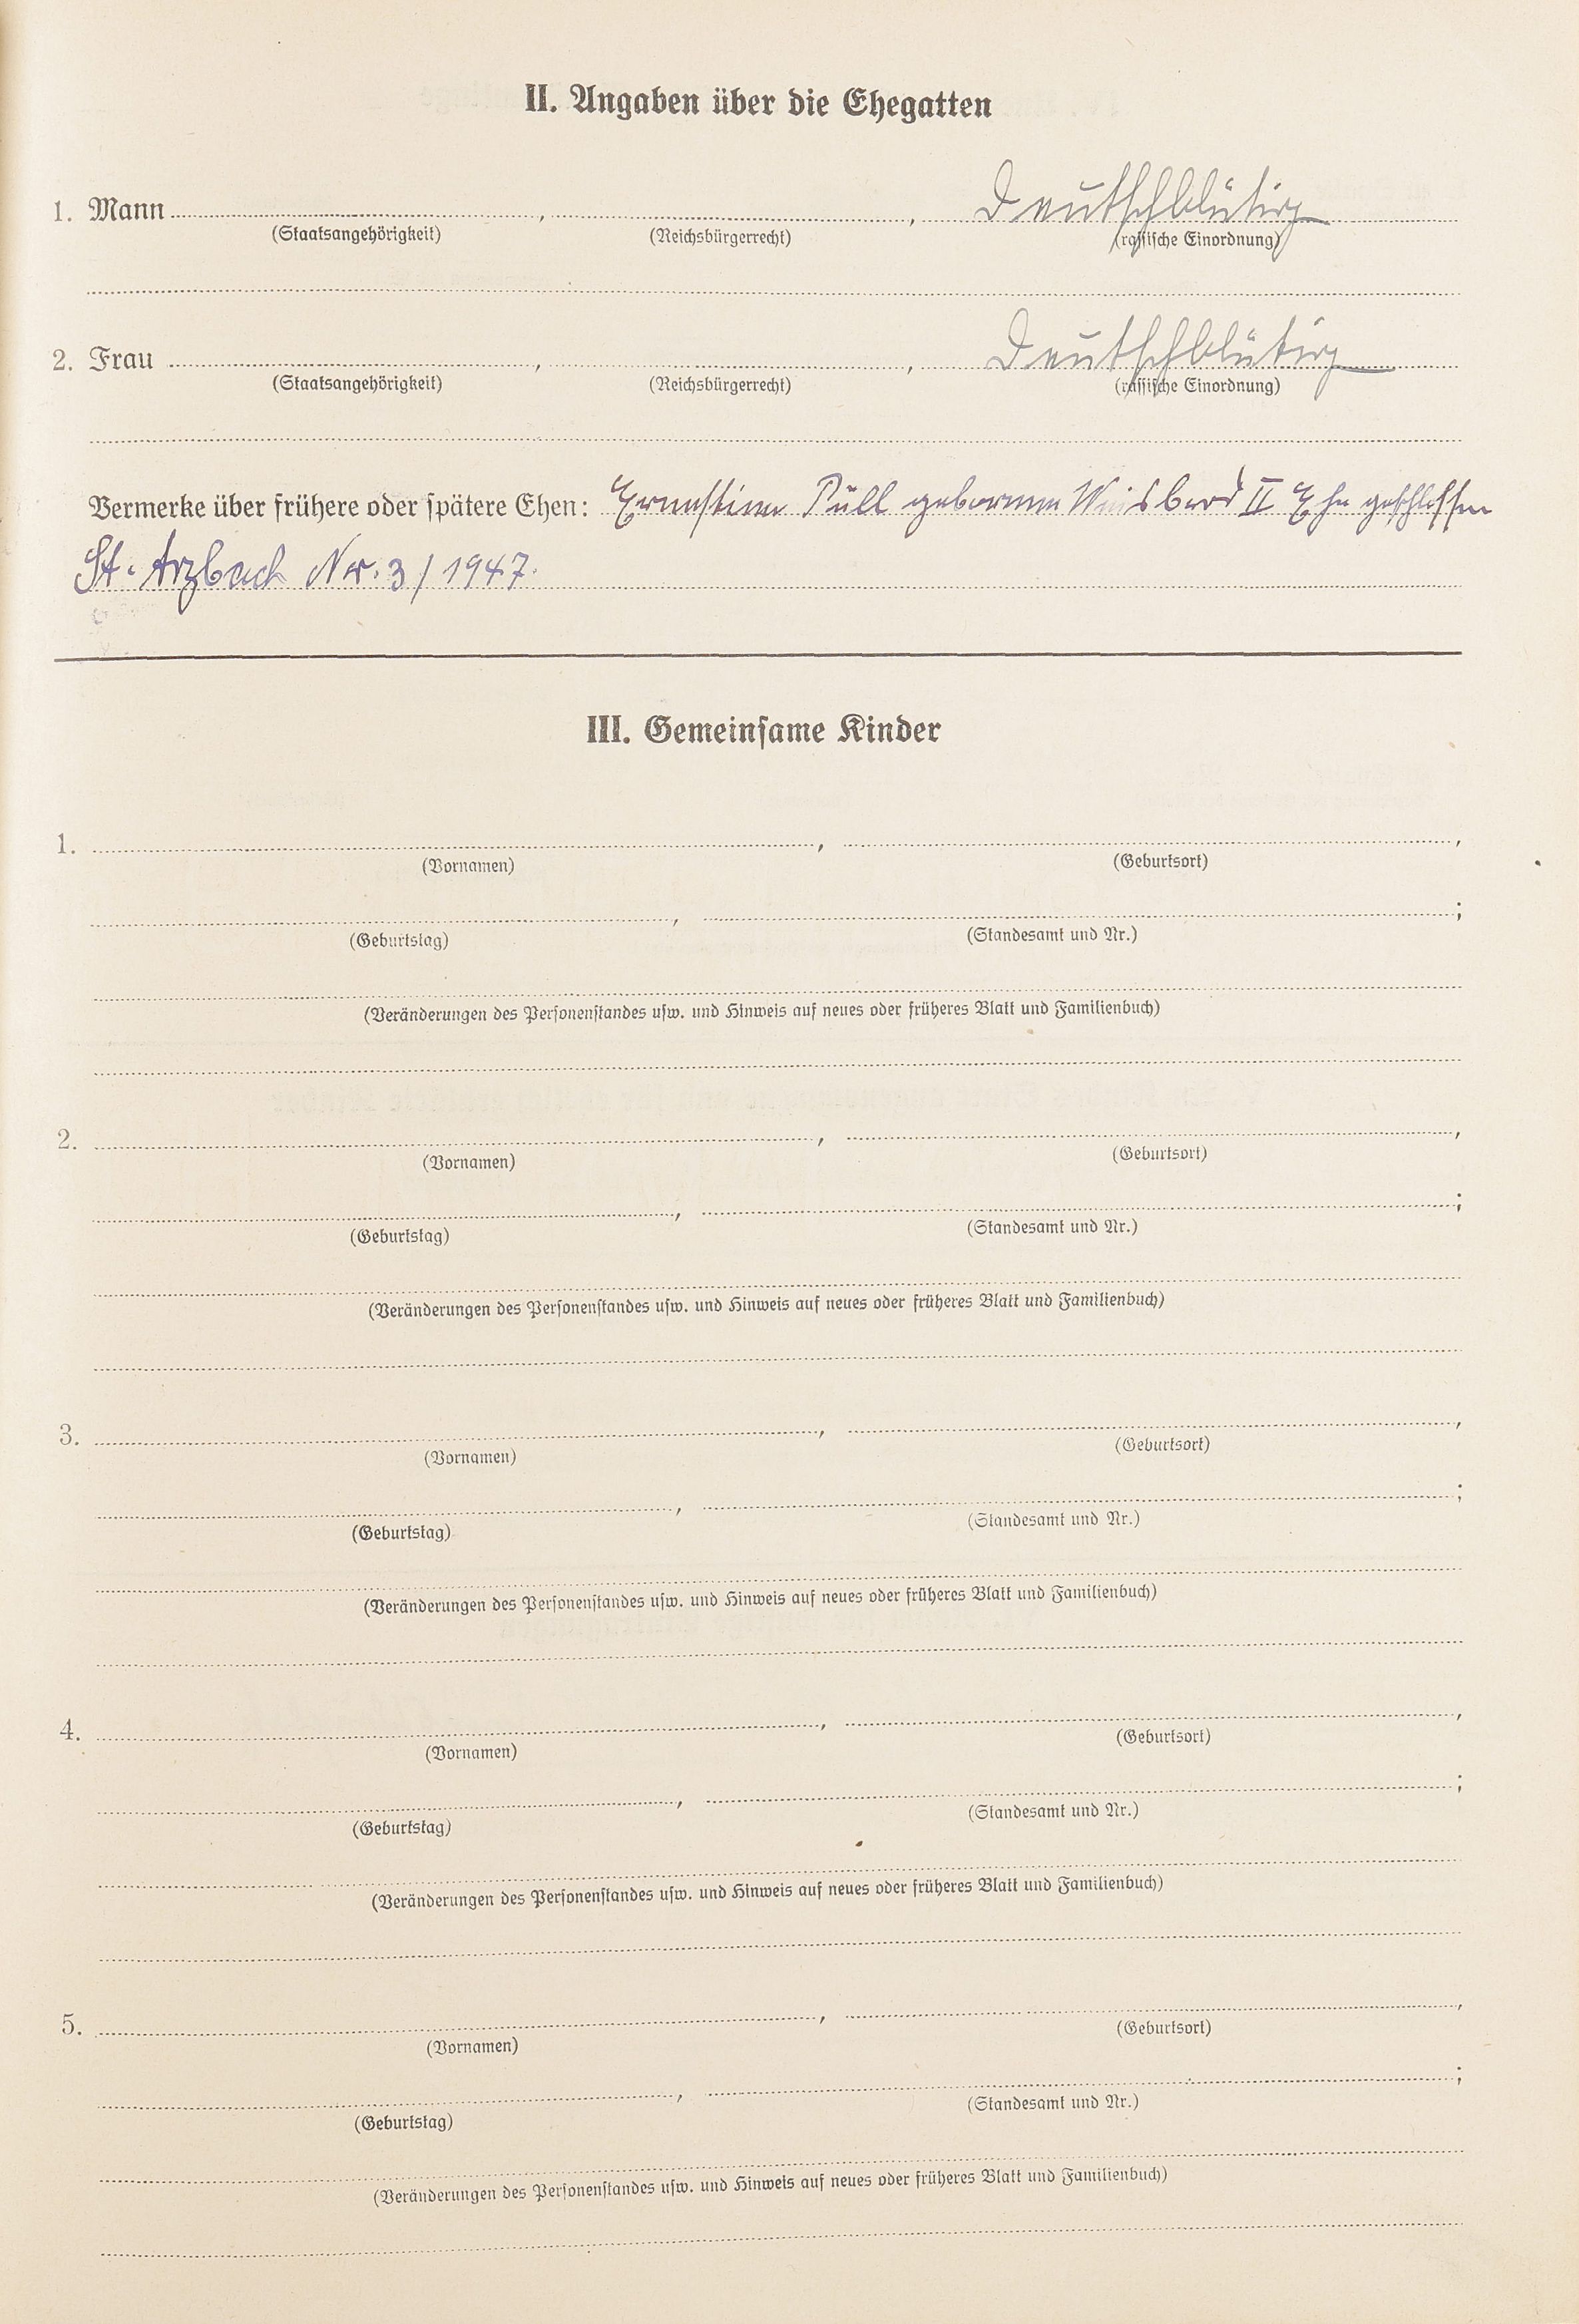 II. Angaben über die Ehegatten
1. Mann , , Deutschblütig
(Staatsangehörigkeit) (Reichsbürgerrecht) (rassische Einordnung)
2. Frau , , Deutschblütig
(Staatsangehörigkeit) (Reichsbürgerrecht) (rassische Einordnung)
Vermerke über frühere oder spätere Ehen: Ernestine Püll geborene II Ehe geschlossen
St. Arzbach Nr. 3/1947.
III. Gemeinsame Kinder
1. , ,
(Vornamen) (Geburtsort)
, ;
(Geburtstag) (Standesamt und Nr.)
(Veränderungen des Personenstandes usw. und Hinweis auf neues oder früheres Blatt und Familienbuch)
2. , ,
(Vornamen) (Geburtsort)
, ;
(Geburtstag) (Standesamt und Nr.)
(Veränderungen des Personenstandes usw. und Hinweis auf neues oder früheres Blatt und Familienbuch)
3. , ,
(Vornamen) (Geburtsort)
, ;
(Geburtstag) (Standesamt und Nr.)
(Veränderungen des Personenstandes usw. und Hinweis auf neues oder früheres Blatt und Familienbuch)
4. , ,
(Vornamen) (Geburtsort)
, ;
(Geburtstag) (Standesamt und Nr.)
(Veränderungen des Personenstandes usw. und Hinweis auf neues oder früheres Blatt und Familienbuch)
5. , ,
(Vornamen) (Geburtsort)
, ;
(Geburtstag) (Standesamt und Nr.)
(Veränderungen des Personenstandes usw. und Hinweis auf neues oder früheres Blatt und Familienbuch)